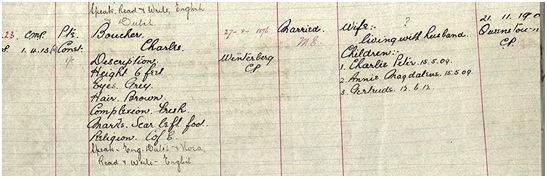 Speak, Read & Write, English
Dutch
23. CMR Pte. Boucher. 27-2-1876 Married. Wife:- ? 21.11.19
1.4.13 Const. Charlie. M.E. living with husband. Queenstown
Description Winterberg Children:- C.P.
Height 6 feet C.P. 1. Charlie Peter. 15.5.09.
Eyes. Grey. 2. Annie Magdalena. 15.5.09.
Hair. Brown. 3. Gertrude. 13.6.13.
Complexion. Fresh.
Marks. Scar Left foot.
Religion. C of E.
Speak - Eng. Dutch & Xosa
Read & Write - English